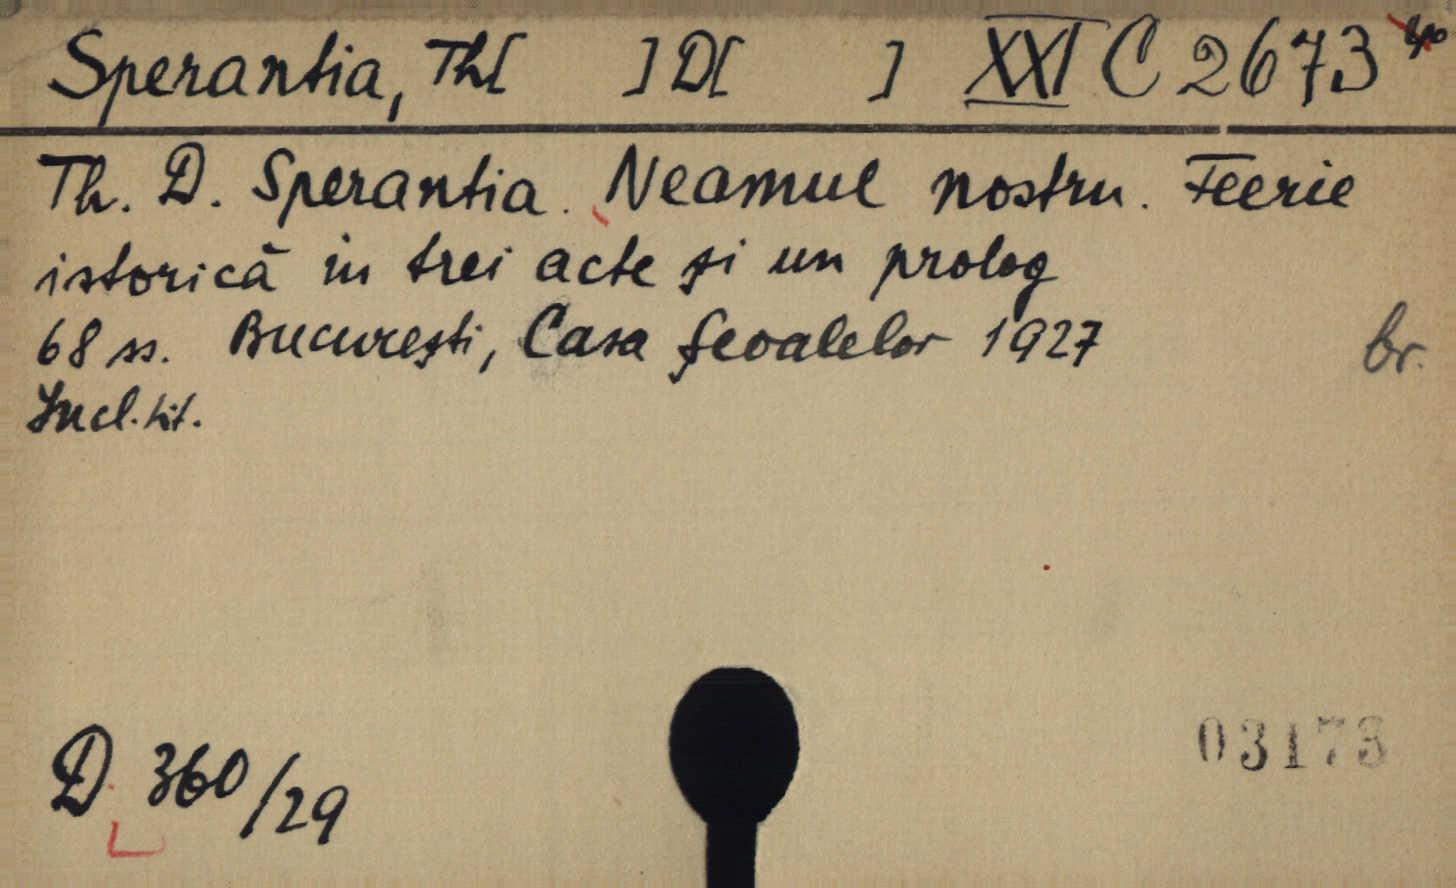 Sperantia, Th[ ] D[ ] XXI C 2673
Th. D. Sperantia. Neamul nostru. Feerie
istorică in trei acte și un prolog
68 ss. București, Casa școalelor 1927 br.
Incl. tit.
D 360/29
03173